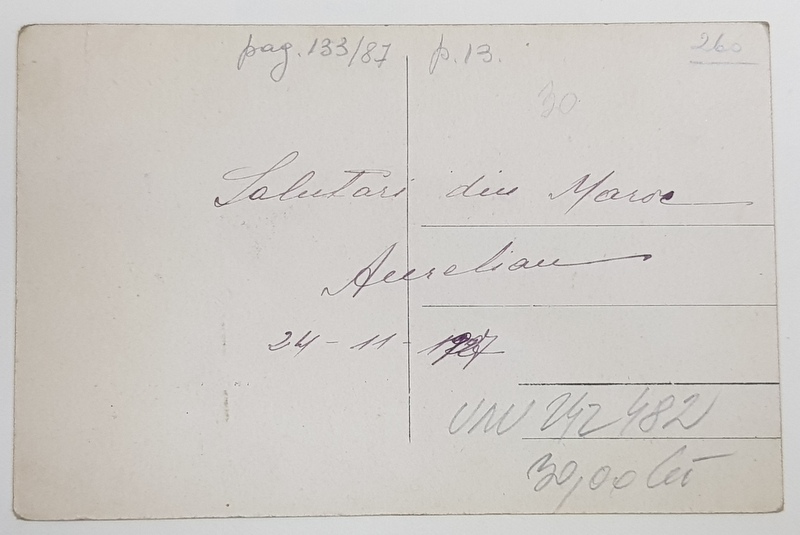 pag. 133/87 p. 13. 260
30
Salutari din Maroc
Aurelian
24-11-1927
242 482
30,00 lei